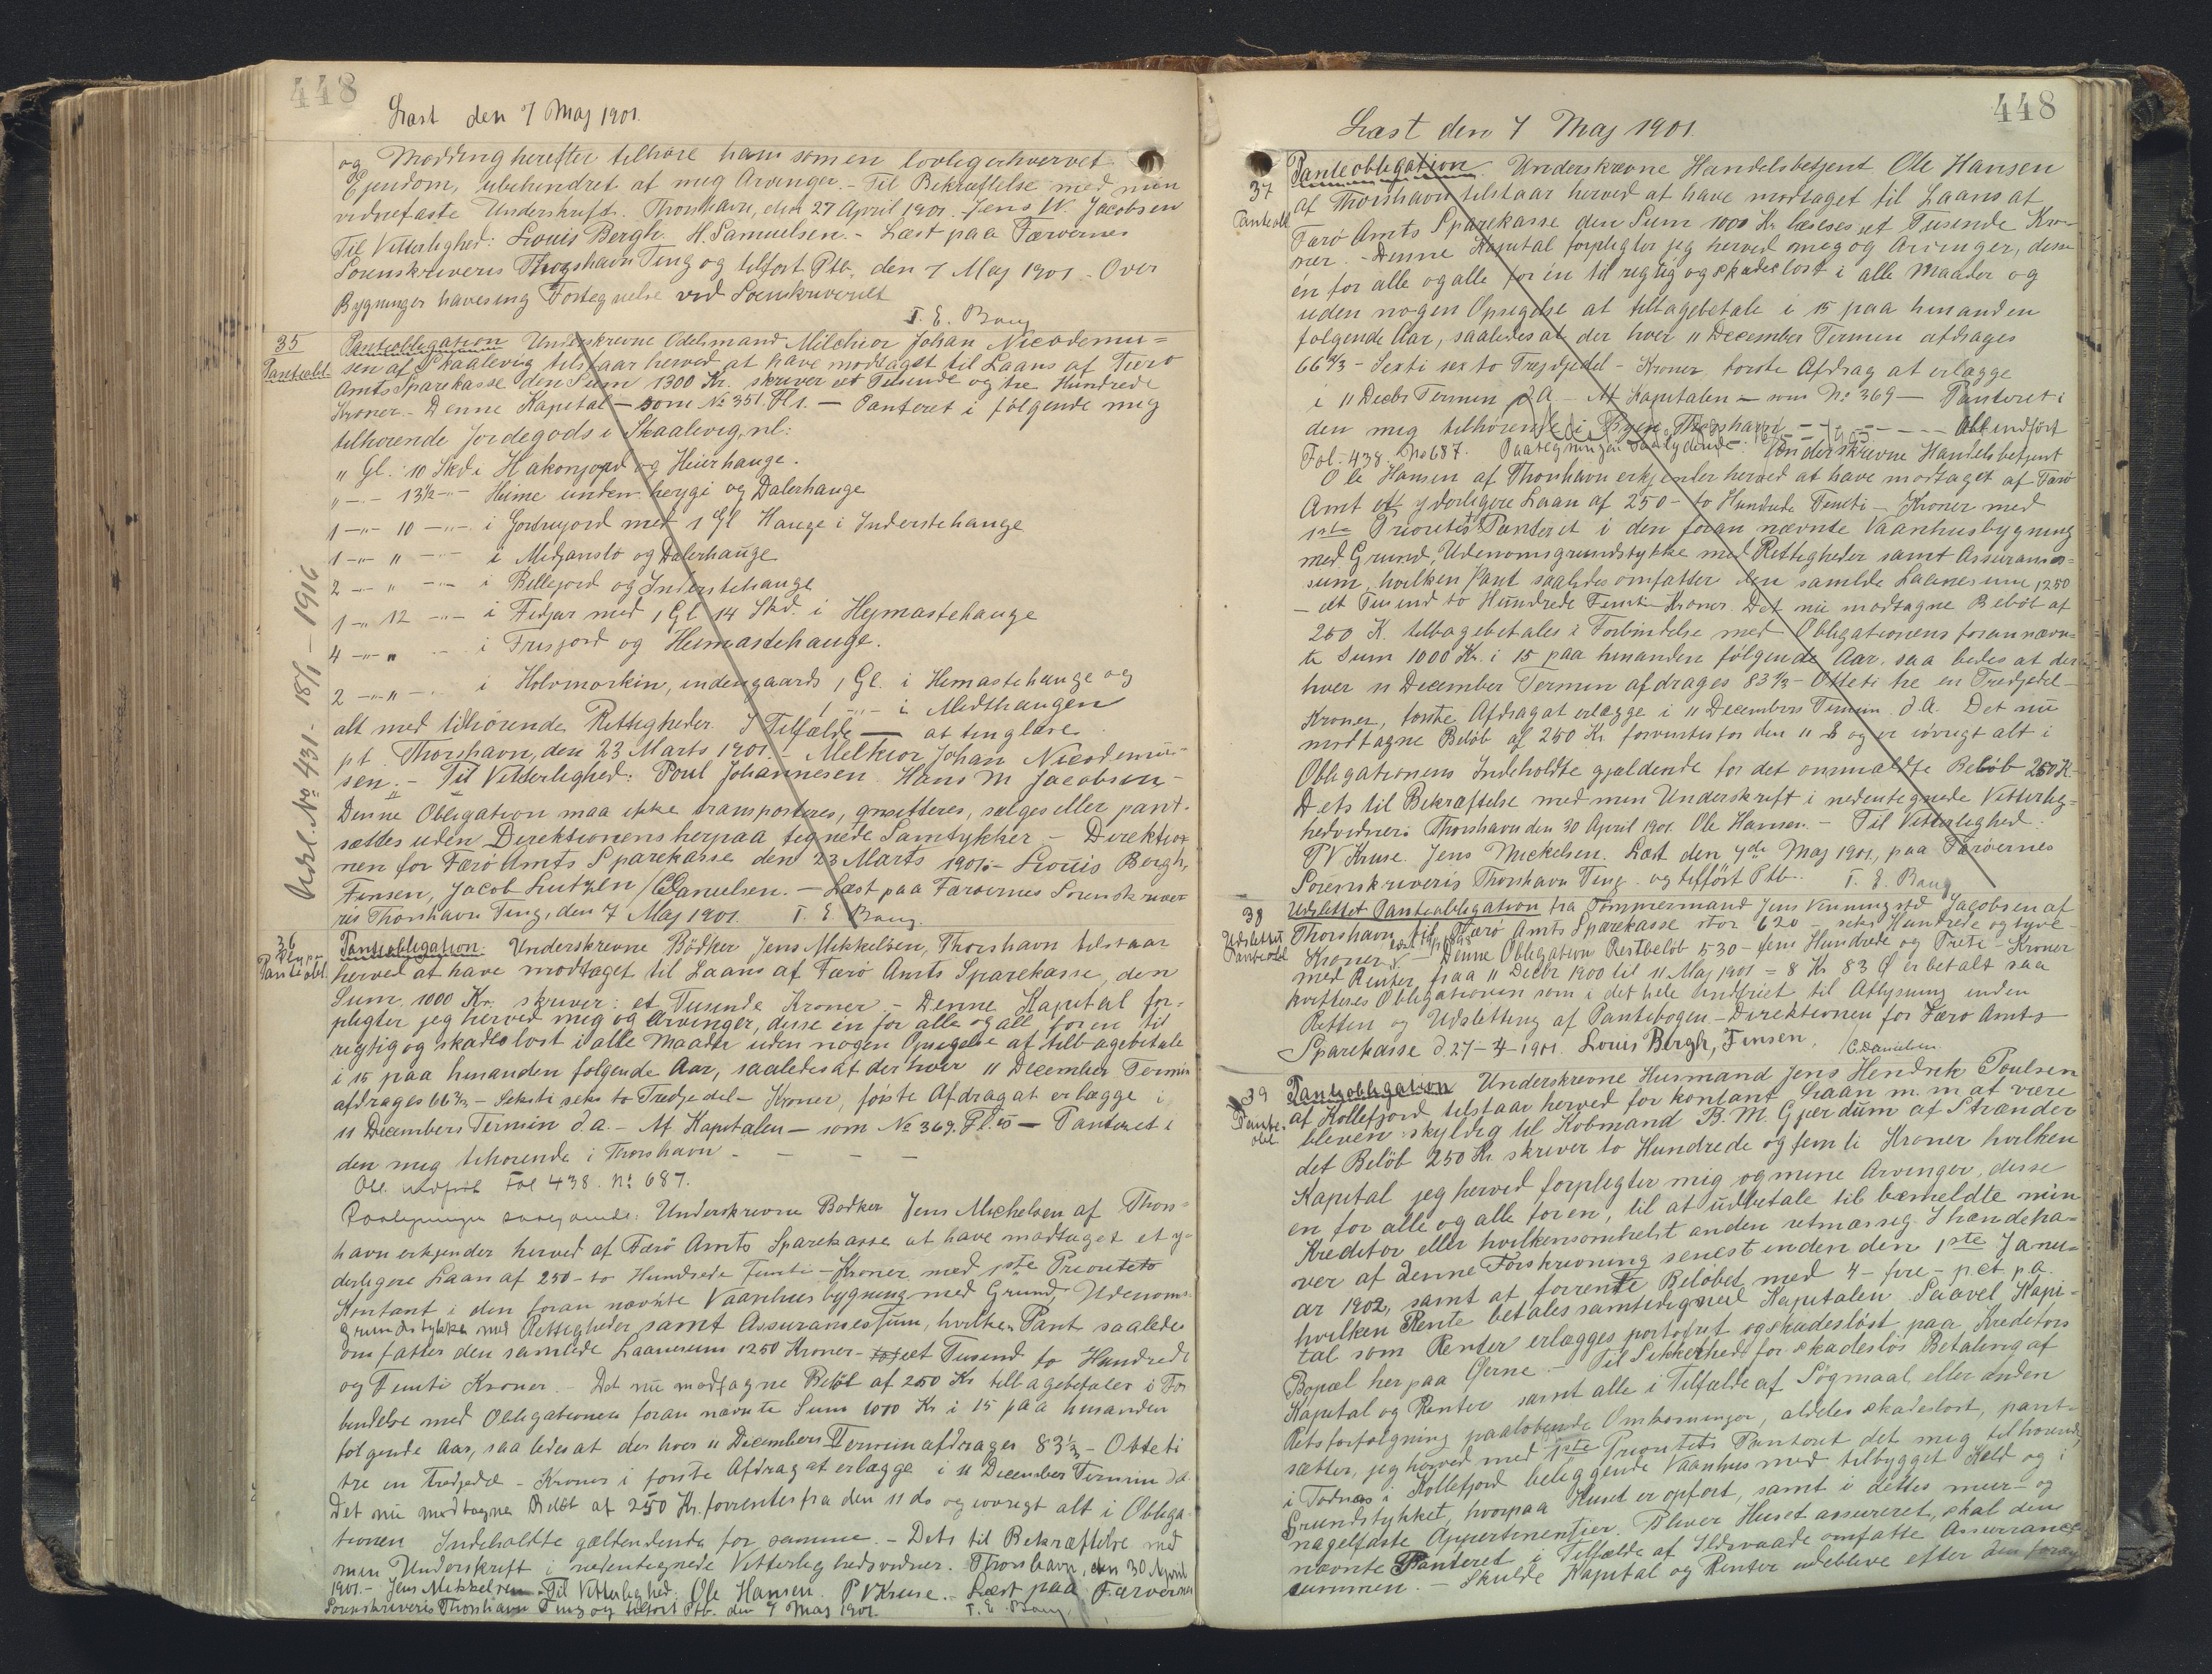 448
Læst den 7 Maj 1901.
og Mødding herefter tilhøre ham som en lovlig erhvervet
Ejendom, ubehindret af mig Arvinger. - Til Bekræftelse med min
vidnefaste Underskrift. Thorshavn, den 27 April 1901. Jens W. Jacobsen
Til Vitterlighed: Louis Bergh. H. Samuelsen. - Læst paa Færøernes
Sorenskriveris Thorshavn Ting og tilført Ptb. den 7 Maj 1901. - Over
Bygninger haves ing Fortegnelse ved Sorenskriveriet
T. E. Bang
35
Panteobl.
Panteobligation Underskrevne Odelsmand Milchior Johan Nicodemu=
sen af Skaalevig tilstaar herved at have modtaget til Laans af Færø
Amts Sparekasse den Sum 1300 Kr. skriver et Tusende og tre Hundrede
Kroner. - Denne Kapital - som No 351. Fl 1. - Panteret i følgende mig
tilhørende Jordegods i Skaalevig, nl:
" Gl. 10 Skd i Hakonjord og Heierhauge.
" -"- 13½ -"- Heime unden heygi og Dalerhauge
1 -"- 10 -"- i Gordrujord med 1 Gl Hauge i Inderstehauge
1 -"- " -"- i Medjanslo og Dalerhauge
2 -"- " -"- i Bellejord og Inderstehauge
1 -"- 12 -"- i Fedjar med 1 Gl 14 Skd. i Hejmastehauge
4 -"- " -"- i Frisjord og Heimastehauge.
2 -"- " -"- i Holvmorkin, indengaards 1 Gl. i Hemastehauge og
1 -"- i Midthaugen
alt med tilhørende Rettigheder. I Tilfælde - at tinglæse
pt. Thorshavn, den 23 Marts 1901. - Melkior Johan Nicodemu-
sen. - Til Vitterlighed: Poul Johannesen Hans M Jacobsen -
Denne Obligation maa ikke transporteres, qvitteres, sælges eller pant-
sættes uden Direktionens herpaa tegnede Samtykker - Direktion
nen for Færø Amts Sparekasse den 23 Marts 1901. - Louis Bergh,
Finsen, Jacob Lutzen /C Danielsen. - Læst paa Færøernes Sorenskrive
ris Thorshavn Ting, den 7 Maj 1901. T. E. Bang.
Udsl. No 431 - 18/1 - 1916
36
Panteobl.
Panteobligation. Underskrevne Bødker Jens Mikkelsen, Thorshavn tilstaar
herved at have modtaget til Laans af Færø Amts Sparekasse, den
Sum 1000 Kr. skriver: et Tusende Kroner. - Denne Kapital for-
pligter jeg herved mig og Arvinger, disse én for alle og alle for en til
rigtig og skadesløst i alle Maader uden nogen Opsigelse at tilbagebetale
i 15 paa hinanden følgende Aar, saaledes at der hver 11 December Termin
afdrages 66⅔ - Seksti seks to Tredjedel - Kroner, første Afdrag at erlægge i
11 Decembers Termin d.a. - Af Kapitalen - som No 369. Fl. 10 - Panteret i
den mig tilhørende i Thorshavn - - - -
Obl. indført Fol 438. No 687.
Paategningen saalydende: Underskrevne Bødker Jens Michelsen af Thors=
havn erkjender herved af Færø Amts Sparekasse at have modtaget et y=
derligere Laan af 250 - to Hundrede Femti - Kroner med 1ste Prioritets
Kontant i den foran nævnte Vaanhusbygning med Grund, Udenoms-
grundstykke med Rettigheder samt Assurancesum, hvilken Pant saaledes
omfatter den samlede Laanesum 1250 Kroner - et Tusend to Hundrede
og Femti Kroner. - Det nu modtagne Beløb af 250 Kr tilbagebetales i For
bindelse med Obligationen foran nævnte Sum 1000 Kr i 15 paa hinanden
følgende Aar, saaledes at der hver 11 Decembers Termin afdrages 83⅓ - Otteti
tre en Tredjedel - Kroner i første Afdrag at erlægge i 11 December Termin da
Det nu modtagne Beløb af 250 Kr. forrentes fra den 11 ds og iøvrigt alt i Obliga
tionen Indeholdte gældendende for samme. - Dets til Bekræftelse med
min Underskrift i nedentegnede Vitterlighedsvidner. Thorshavn, den 30 April
1901. - Jens Mikkelsen - Til Vitterlighed: Ole Hansen. P V Kruse. - Læst paa Færøernes
Sorenskriveris Thorshavn Ting og tilført Ptb. den 7 Maj 1901. T. E. Bang.
448
Læst den 7 Maj 1901.
37
Panteobl
Panteobligation. Underskrevne Handelsbetjent Ole Hansen
af Thorshavn tilstaar herved at have modtaget til Laans af
Færø Amts Sparekasse den Sum 1000 Kr. læses et Tusende Kro-
ner. - Denne Kapital forpligter jeg herved mig og Arvinger, disse
én for alle og alle for én til rigtig og skadesløst i alle Maader og
uden nogen Opsigelse at tilbagebetale i 15 paa hinanden
følgende Aar, saaledes at der hver 11 December Termin afdrages
66⅔ - Sexti sex to Tredjedel - Kroner, første Afdrag at erlægge
i 11 Decbr Termin d.A. - Af Kapitalen - som No 369 - Panteret i
den mig tilhørende i Byen Thorshavn - - - - - - Obl. indført
Fol. 438. No 687. Paategningen saalydende: Underskrevne Handelsbetjent
Ole Hansen af Thorshavn erkjender herved at have modtaget af Færø
Amt et yderligere Laan af 250 - to Hundrede Femti - Kroner med
1ste Prioritets Panteret i den foran nævnte Vaanhusbygning
med Grund, Udenomsgrundstykke med Rettigheder samt Assurance-
sum, hvilken Pant saaledes omfatter den samlede Laanesum 1250
- et Tusend to Hundrede Femti - Kroner. Det nu modtagne Beløb af
250 K. tilbagebetales i Forbindelse med Obligationens forannævn=
te Sum 1000 Kr. i 15 paa hinanden følgende Aar, saaledes at der
hver 11 December Termin afdrages 83⅓ - Otteti tre en Tredjedel -
Kroner, første Afdrag at erlægge i 11 Decembers Termin d.A. Det nu
modtagne Beløb af 250 Kr forrentes fra den 11 ds og er iøvrigt alt i
Obligationens Indeholdte gjældende for det ommeldte Beløb 250 K.
Dets til Bekræftelse med min Underskrift i nedentegnede Vitterlig=
hedvidner. Thorshavn den 30 April 1901. Ole Hansen. - Til Vitterlighed:
P V Kruse. Jens Mickelsen. Læst den 7de Maj 1901, paa Færøernes
Sorenskriveris Thorshavn Ting. og tilført Ptb. T. E. Bang
38
Udslettet
Panteobl
Udslettet Panteobligation fra Tømmermand Jens Jacobsen af
Thorshavn til Færø Amts Sparekasse stor 620 seks Hundrede og tyve -
Kroner - Denne Obligation Restbeløb 530 - fem Hundrede og Treti - Kroner
med Renter fraa 11 Decbr 1900 til 11 Maj 1901 = 8 Kr 83 Ø er betalt saa
kvitteres Obligationen som i det hele Indfriet til Aflysning inden
Retten og Udsletting af Pantebogen. - Direktionen for Færø Amts
Sparekasse d. 27-4-1901. Louis Bergh, Finsen. /C. Danielsen
39
Pante-
obl
Panteobligation Underskrevne Husmand Jens Hendrik Poulsen
af Kollefjord tilstaar herved for kontant Laan m. m. at være
bleven skyldig til Købmand B. M. Gjerdum af Strænder
det Beløb 250 Kr. skriver to Hundrede og femti Kroner hvilken
Kapital jeg herved forpligter mig og mine Arvinger, disse
en for alle og alle for en, til at udbetale til bemeldte min
Kreditor eller hvilkensomhelst anden retmæssig Ihændeha=
ver af denne Forskrivning senest inden den 1ste Janu=
ar 1902, samt at forrente Beløbet med 4 - fire - pct p.a.
hvilken Rente betales samtidig med Kapitalen. Saavel Kapi-
tal som Renter erlægges portofrit og skadesløst paa Kreditors
Bopæl her paa Øerne. - Til Sikkerhed for skadesløs Betaling af
Kapital og Renter samt alle i Tilfælde af Søgmaal eller anden
Retsforfølgning paaløbende Omkostninger, aldeles skadesløst, pant-
sætter jeg herved med 1ste Prioritets Panteret det mig tilhørende
i Todnæs i Kollefjord beliggende Vaanhus med tilbygget Køld og i
Grundstykket, hvorpaa Huset er opført, samt i dettes mur- og
nagelfaste Appertinentier. Bliver Huset assureret, skal den
nævnte Panteret i Tilfælde af Ildsvaade omfatte Assurance
summen. - Skulde Kapital og Renter udeblive efter den foran